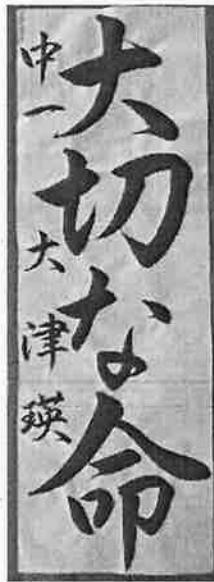 大切な命
中一 大津瑛